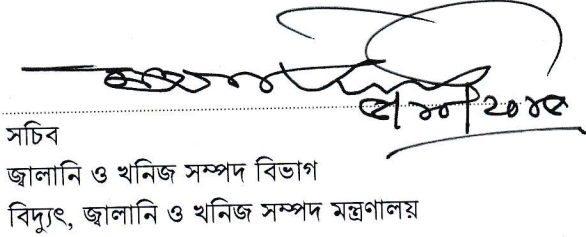 সচিব
জ্বালানি ও খনিজ সম্পদ বিভাগ
বিদ্যুৎ, জ্বালানি ও খনিজ সম্পদ মন্ত্রণালয়